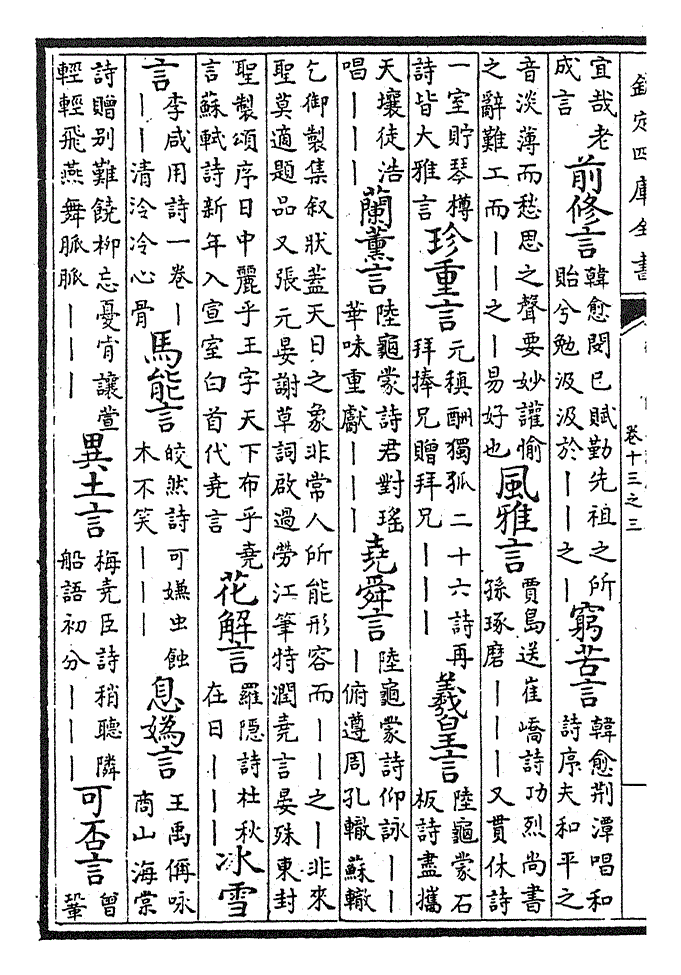 欽定四庫全書
卷十三之三
宜哉老
成言
前修言
韓愈閔已賦勤先祖之所
貽兮勉汲汲於丨丨之丨
窮苦言
韓愈荆潭唱和
詩序夫和平之
音淡薄而愁思之聲要妙讙愉
之辭難工而丨丨之丨易好也
風雅言
賈島送崔嶠詩功烈尚書
孫琢磨丨丨丨又貫休詩
一室貯琴樽
詩皆大雅言
珍重言
元稹酬獨孤二十六詩再
拜捧兄贈拜兄丨丨丨
羲皇言
陸龜蒙石
板詩盡攜
天壤徒浩
唱丨丨丨
蘭薰言
陸龜蒙詩君對瑤
華味重獻丨丨丨
堯舜言
陸龜蒙詩仰詠丨丨
丨俯遵周孔轍蘇轍
乞御製集叙狀蓋天日之象非常人所能形容而丨丨之丨非來
聖莫適題品又張元晏謝草詞啟過勞江筆特潤堯言晏殊東封
聖製頌序日中麗乎王字天下布乎堯
言蘇軾詩新年入宣室白首代堯言
花解言
羅隱詩杜秋
在日丨丨丨
冰雪
言
李咸用詩一卷丨
丨丨清泠泠心骨
馬能言
皎然詩可嫌虫蝕
木不笑丨丨丨
息媯言
王禹偁咏
商山海棠
詩贈别難饒柳忘憂肯讓萱
輕輕飛燕舞脈脈丨丨丨
異土言
梅堯臣詩稍聽隣
船語初分丨丨丨
可否言
曾
鞏